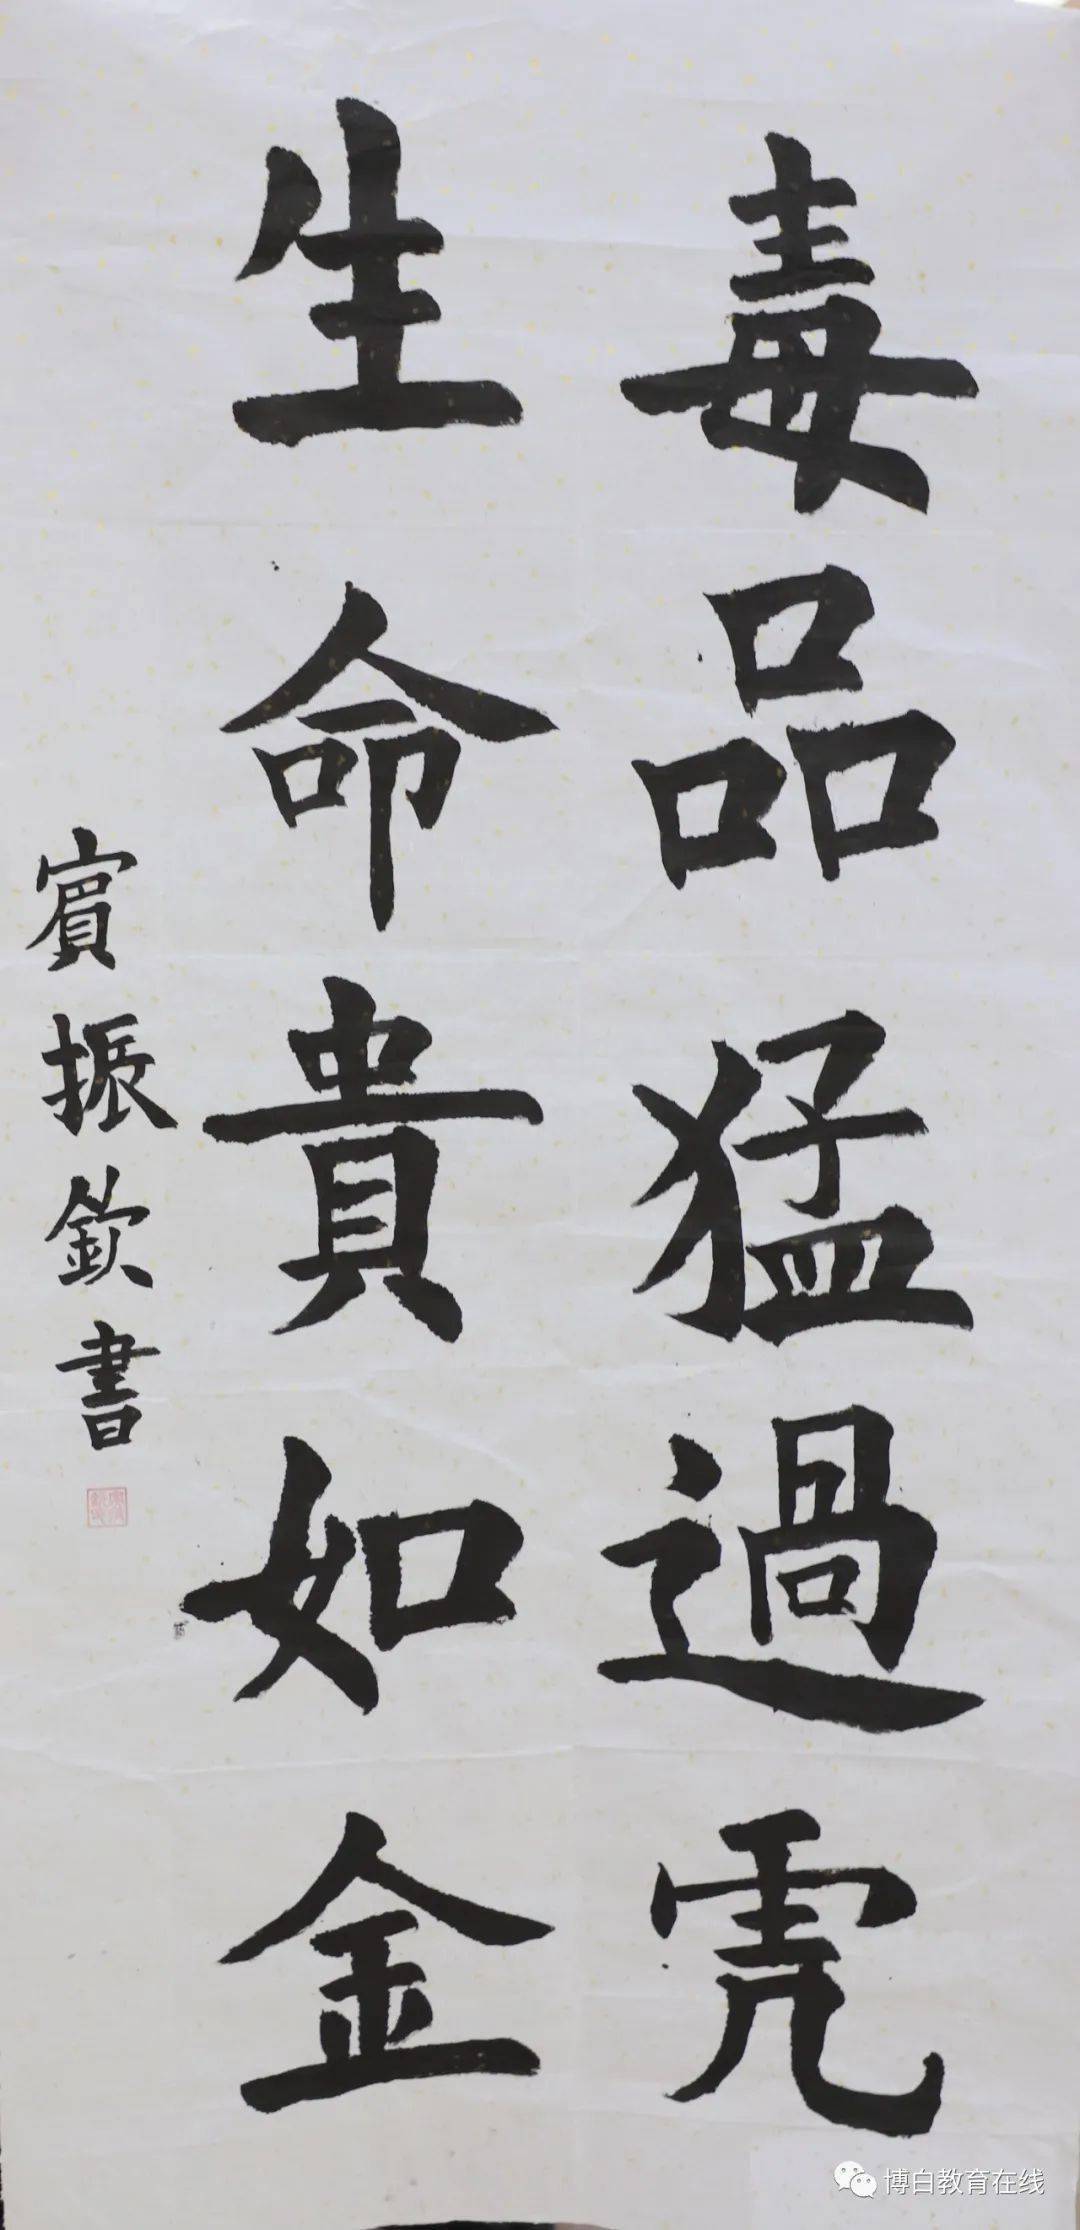 毒品猛過虎
生命貴如金
賓振欽書
博白教育在线